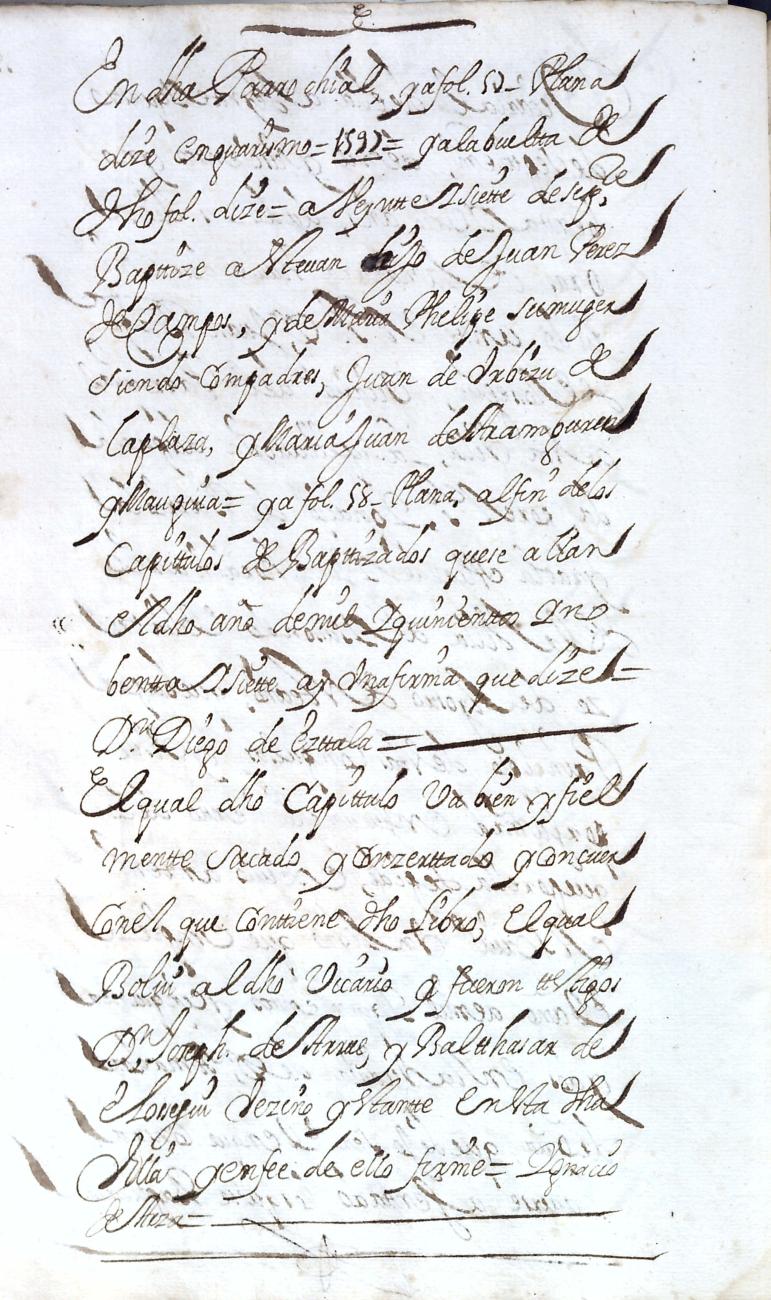 En dha Parroghial, y a fol. 57 Plana
dize en guarismo = 1597 = y a la buelta de
dho fol. dize = a Veyntte Y siette de sepre,
Baptize a Stevan hijo de Juan Perez
de Campos, y de Maria Phelipe su muger
siendo Compadres, Juan de Urbizu de
la plaza, y Maria Juan de Aramburu
y = y a fol. 58 Plana, al fin de los
Capittulos de Baptizados que se allan
el dho año de mil Y quinienttos Y no
bentta Y siette ay Una firma que dize =
Dn Diego de Ezttala =
El qual dho Capittulo Va bien y fiel
mentte sacado y Conzerttado y concuer
Con el que Conttiene dho Libro, el qual
Bolvi al dho Vicario y fueron ttesttigos
Dn Joseph de Arrue, y Balthasar de
Elorregui Vezino y Stantte en Sta dha
Villa y en fee de ello firme = Ygnacio
de Alzza =